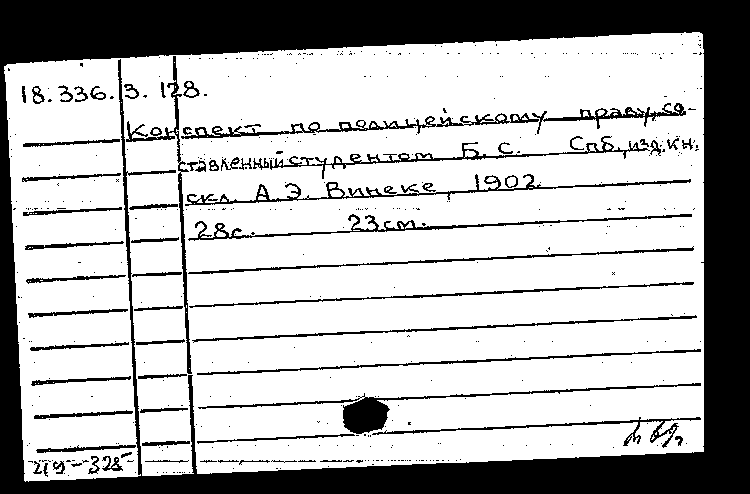 18.336.3.128.
Конспект по полицейскому праву, со-
ставленный студентом Б. С. Спб., изд. кн.
скл. А. Э. Винеке, 1902.
28с. 23см.
49-325